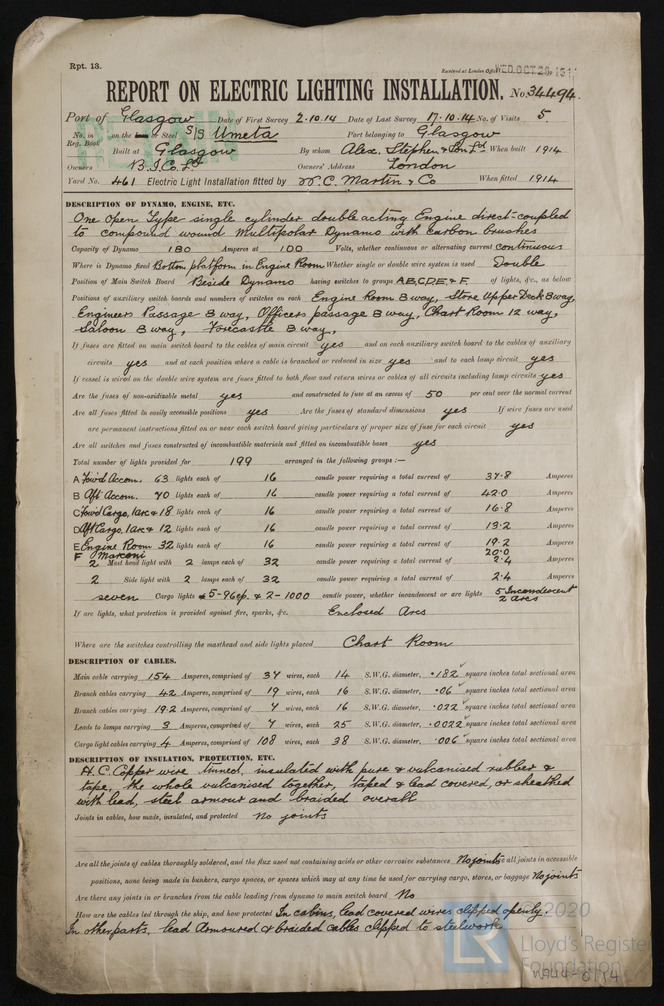 Rpt. 13.
Received at London Office WED. OCT 28 191
REPORT ON ELECTRIC LIGHTING INSTALLATION. No. 34494.
Port of Glasgow Date of First Survey 2.10.14 Date of Last Survey 17.10.14 No. of Visits 5.
No. in Reg. Book on the Iron or Steel S/S Umeta Port belonging to Glasgow
Built at Glasgow By whom Alex. Stephen & Son Ld When built 1914
Owners B.I.Co. Ld Owners' Address London
Yard No. 461 Electric Light Installation fitted by W. C. Martin & Co When fitted 1914
DESCRIPTION OF DYNAMO, ENGINE, ETC.
One Open Type single cylinder double acting Engine direct-coupled
to compound wound Multipolar Dynamo with carbon brushes
Capacity of Dynamo 180 Amperes at 100 Volts, whether continuous or alternating current continuous
Where is Dynamo fixed Bottom platform in Engine Room Whether single or double wire system is used Double
Position of Main Switch Board Beside Dynamo having switches to groups A,B,C,D,E & F of lights, &c., as below
Positions of auxiliary switch boards and numbers of switches on each Engine Room 8 way, Store Upper Deck 8 way,
Engineers Passage 8 way, Officers passage 8 way, Chart Room 12 way,
Saloon 8 way, Forecastle 8 way,
If fuses are fitted on main switch board to the cables of main circuit yes and on each auxiliary switch board to the cables of auxiliary
circuits yes and at each position where a cable is branched or reduced in size yes and to each lamp circuit yes
If vessel is wired on the double wire system are fuses fitted to both flow and return wires or cables of all circuits including lamp circuits yes
Are the fuses of non-oxidizable metal yes and constructed to fuse at an excess of 50 per cent over the normal current
Are all fuses fitted in easily accessible positions yes Are the fuses of standard dimensions yes If wire fuses are used
are permanent instructions fitted on or near each switch board giving particulars of proper size of fuse for each circuit yes
Are all switches and fuses constructed of incombustible materials and fitted on incombustible bases yes
Total number of lights provided for 199 arranged in the following groups :—
A Fow'd Accom. 63 lights each of 16 candle power requiring a total current of 37.8 Amperes
B Aft Accom. 70 lights each of 16 candle power requiring a total current of 42.0 Amperes
C Fow'd Cargo, 1 arc & 18 lights each of 16 candle power requiring a total current of 16.8 Amperes
D Aft Cargo, 1 arc & 12 lights each of 16 candle power requiring a total current of 13.2 Amperes
E Engine Room 32 lights each of 16 candle power requiring a total current of 19.2 Amperes
F Marconi 20.0
2 Mast head light with 2 lamps each of 32 candle power requiring a total current of 2.4 Amperes
2 Side light with 2 lamps each of 32 candle power requiring a total current of 2.4 Amperes
seven Cargo lights of 5-96cp. & 2-1000 candle power, whether incandescent or arc lights 5 Incandescent 2 arcs
If arc lights, what protection is provided against fire, sparks, &c. Enclosed Arcs
Where are the switches controlling the masthead and side lights placed Chart Room
DESCRIPTION OF CABLES.
Main cable carrying 154 Amperes, comprised of 37 wires, each 14 S.W.G. diameter, .182 square inches total sectional area
Branch cables carrying 42 Amperes, comprised of 19 wires, each 16 S.W.G. diameter, .06 square inches total sectional area
Branch cables carrying 19.2 Amperes, comprised of 7 wires, each 16 S.W.G. diameter, .022 square inches total sectional area
Leads to lamps carrying 3 Amperes, comprised of 7 wires, each 25 S.W.G. diameter, .0022 square inches total sectional area
Cargo light cables carrying 4 Amperes, comprised of 108 wires, each 38 S.W.G. diameter, .006 square inches total sectional area
DESCRIPTION OF INSULATION, PROTECTION, ETC.
H.C. Copper wire tinned, insulated with pure & vulcanised rubber &
tape, the whole vulcanised together, taped & lead covered, or sheathed
with lead, steel armour and braided overall
Joints in cables, how made, insulated, and protected No joints
Are all the joints of cables thoroughly soldered, and the flux used not containing acids or other corrosive substances No joints all joints in accessible
positions, none being made in bunkers, cargo spaces, or spaces which may at any time be used for carrying cargo, stores, or baggage No joints
Are there any joints in or branches from the cable leading from dynamo to main switch board No
How are the cables led through the ship, and how protected In cabins, lead covered wires clipped openly.
In other parts, lead Armoured & braided cables clipped to steelwork
© 2020
Lloyd's Register
Foundation
W944-0114